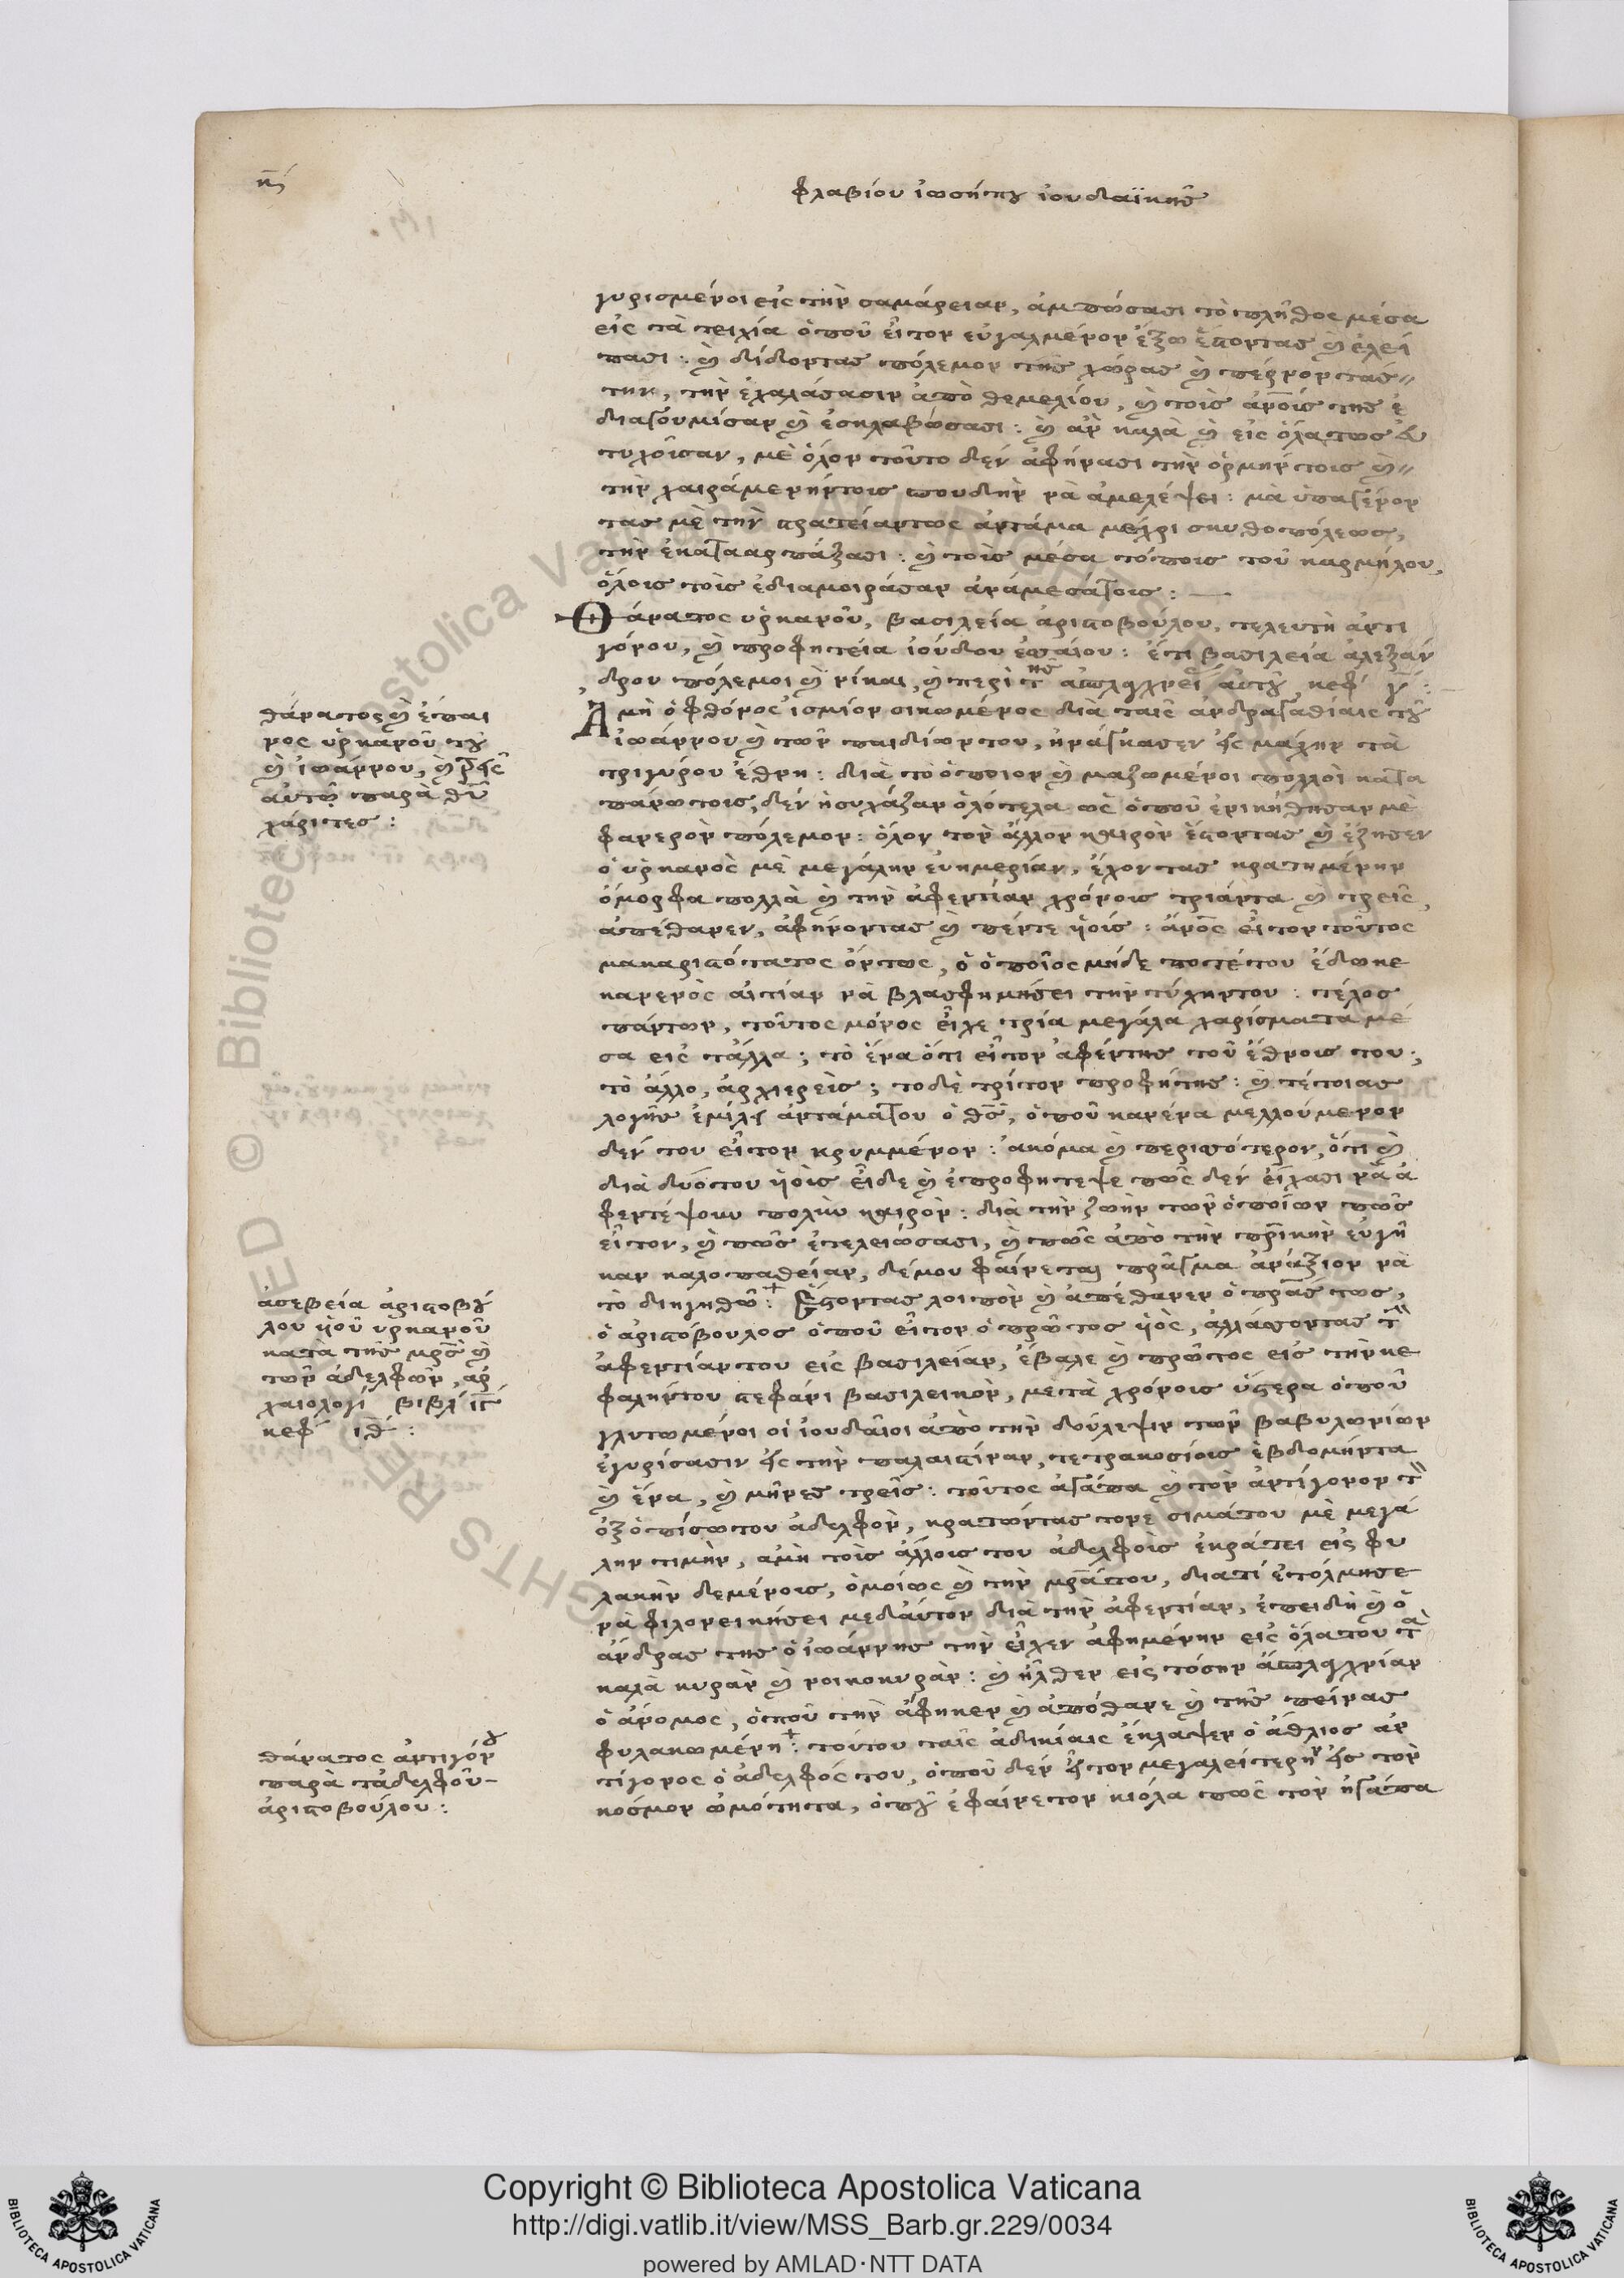 φλαβίου ἰωσήπου ἰουδαϊκῆς
γυρισμένοι εἰς τὴν σαμάρειαν, ἀμπώσασι τὸ πλῆθος μέσα
εἰς τὰ τειχία ὁποῦ εἶτον εὐγαλμένον ἔξω ἔστοντας καὶ ἐλεί
πασι: καὶ δίδοντας πόλεμον τῆς χώρας καὶ πέρνοντας
την, τὴν ἐχαλάσασιν ἀπὸ θεμελίου, καὶ τοὶς ἀνοὶς της ἐ
διαγουμίσαν καὶ ἐσκλαβώσασι: καὶ ἂν καλὰ καὶ εἰς ὅλα τως εὐ
τυχοῖσαν, μὲ ὅλον τοῦτο δὲν ἀφήνασι τὴν ὁρμήν τοις καὶ
τὴν χαιράμενήντοις σπουδὴν νὰ ἀμελέψει: μὰ ὑπαγένον
τας μὲ τὴν στρατείαντως ἀντάμα μέχρι σκυθοπόλεως,
τὴν ἐκαταρπάξασι: καὶ τοὶς μέσα τόποις τοῦ καρμήλου,
ὅλοις τοὶς ἐδιαμοιράσαν ἀνάμεσάτοις:
Θάνατος ὑρκανοῦ, βασιλεία ἀριστοβούλου, τελευτὴ ἀντι
γόνου, καὶ προφητεία ἰούδου ἐσαίου: ἔτι βασιλεία ἀλεξάν
δρου πόλεμοι καὶ νίκαι, καὶ περὶ τῆς αὐτοῦ κεφ γ:
Ἀμὴ ὁ φθόνος ἰσμίον σικωμένος διὰ ταῖς ἀνδραγαθίαις τοῦ
ἰωάννου καὶ τῶν παιδίων του, ἠνάγκασεν εἰς μάχην τὰ
τριγύρου ἔθνη: διὰ τὸ ὁποῖον καὶ μαζωμένοι πολλοὶ κατα
πάνωτοις, δὲν ἡσυχάζαν ὁλότελα ὡς ὁποῦ ἐνικήθησαν μὲ
φανερὸν πόλεμον: ὅλον τὸν ἄλλον καιρὸν ἔστοντας καὶ ἔζησεν
ὁ ὑρκανὸς μὲ μεγάλην εὐημερίαν, ἔχοντας κρατημένην
ὄμορφα πολλὰ καὶ τὴν ἀφεντίαν χρόνοις τριάντα καὶ τρεῖς,
ἀπέθανεν, ἀφήνοντας καὶ πέντε ὑοὶς: ἄνος εἶτον τοῦτος
μακαριστότατος ὄντως, ὁ ὁποῖος μήδε ποτέτου ἔδωκε
κανενὸς αἰτίαν νὰ βλασφημήσει τὴν τύχηντου: τέλος
πάντων, τοῦτος μόνος εἶχε τρία μεγάλα χαρίσματα μέ
σα εἰς τἄλλα; τὸ ἕνα ὅτι εἶτον ἀφέντης τοῦ ἔθνοις του;
τὸ ἄλλο, ἀρχιερεὶς; τὸ δὲ τρίτον προφήτης: καὶ τέτοιας
λογῆς ἐμίλει ἀντάματου ὁ θς, ὁποῦ κανένα μελλούμενον
δὲν του εἶτον κρυμμένον: ἀκόμα καὶ περισσότερον, ὅτι καὶ
διὰ δυό του ὑοὶς εἶδε καὶ ἐπροφήτεψε πῶς δὲν εἴχασι νὰ ἀ
φεντέψουν πολὺν καιρὸν: διὰ τὴν ζωὴν τῶν ὁποίων πῶς
εἶτον, καὶ πῶς ἐτελειώσασι, καὶ πῶς ἀπὸ τὴν πρικὴν εὐγῆ
καν καλοπαθείαν, δέμου φαίνεται πρᾶγμα ἀνάξιον νὰ
τὸ διηγηθῶ: Ἔστοντας λοιπὸν καὶ ἀπέθανεν ὁ πρας τως,
ὁ ἀριστόβουλος ὁποῦ εἶτον ὁ πρῶτος ὑὸς, ἀλλάσσοντας τὴν
ἀφεντίαν του εἰς βασιλείαν, ἔβαλε καὶ πρῶτος εἰς τὴν κε
φαλήντου στεφάνι βασιλεικὸν, μετὰ χρόνοις ὕστερα ὁποῦ
γλυτωμένοι οἱ ἰουδαῖοι ἀπὸ τὴν δούλεψιν τῶν βαβυλωνίων
ἐγυρίσασιν εἰς τὴν παλαιστίναν, τετρακοσίοις ἑβδομήντα
καὶ ἕνα, καὶ μῆνες τρεῖς: τοῦτος ἀγάπα καὶ τὸν ἀντίγονον τὸν
ὀξοπίσωτου ἀδελφὸν, κρατώντας τονε σιμάτου μὲ μεγά
λην τιμὴν, ἀμὴ τοὶς ἄλλοις του ἀδελφοὶς ἐκράτει εἰς φυ
λακὴν δεμένοις, ὁμοίως καὶ τὴν μραντου, διατί ἐτόλμησε
νὰ φιλονεικήσει μεδαύτον διὰ τὴν ἀφεντίαν, ἐπειδὴ καὶ ὁ
ἄνδρας της ὁ ἰωάννης τὴν εἶχεν ἀφημένην εἰς ὅλα του τὰ
καλὰ κυρὰν καὶ νοικοκυρὰν: καὶ ἦλθεν εἰς τόσην
ὁ ἄνομος, ὁποῦ τὴν ἄφηκεν καὶ ἀπόθανε καὶ τῆς πείνας
φυλακωμένη: τούτου ταῖς ἀδικίαις ἔκλαψεν ὁ ἄθλιος ἀν
τίγονος ὁ ἀδελφός του, ὁποῦ δὲν εἶτον μεγαλείτερη εἰς τὸν
κόσμον ὠμότητα, ὁποῦ ἐφαίνετον κιόλα πῶς τὸν ἠγάπα
θάνατος καὶ ἔπαι
νος ὑρκανοῦ τοῦ
καὶ ἰωάννου, καὶ
αὐτῶ παρὰ θυ
χάριτες:
ἀσεβεία ἀριστοβού
λου ὑοῦ ὑρκανοῦ
κατὰ τῆς μρς καὶ
τῶν ἀδελφῶν, ἀρ
χαιολογί βιβλ ιγ
κεφ ιθ:
θάνατος ἀντιγόνου
παρὰ τἀδελφοῦ
ἀριστοβούλου:
Copyright © Biblioteca Apostolica Vaticana
http://digi.vatlib.it/view/MSS_Barb.gr.229/0034
powered by AMLAD·NTT DATA
BIBLIOTECA APOSTOLICA VATICANA
BIBLIOTECA APOSTOLICA VATICANA